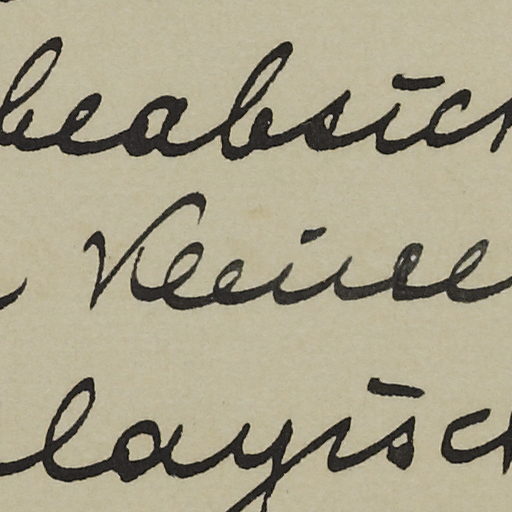 beabsich
Kleine
layisch